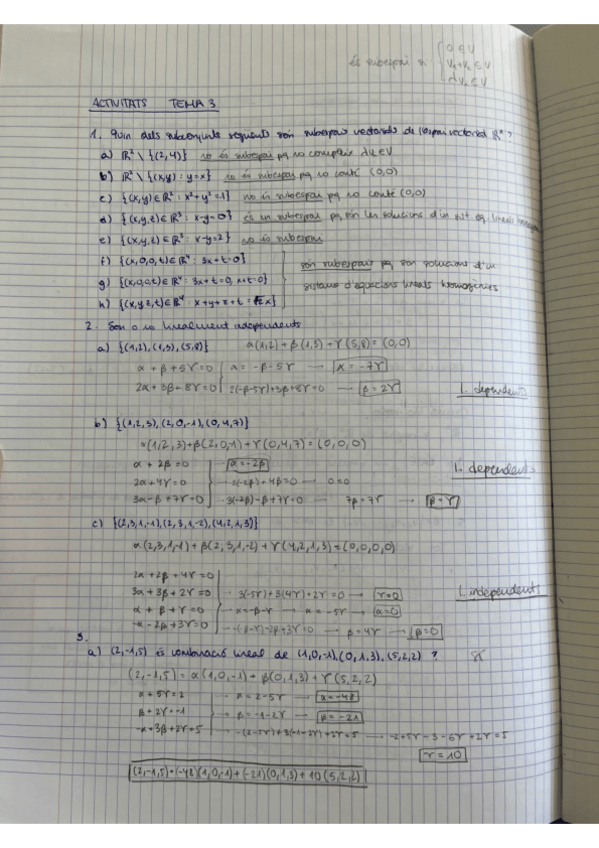 és subespai si { 0 ∈ V
V₁+V₂ ∈ V
λV₂ ∈ V
ACTIVITATS TEMA 3
1. Quin dels subconjunts següents són subespais vectorials de l'espai vectorial ℝⁿ?
a) ℝ² \ {(2,4)} no és subespai pq no compleix λu∈V
b) ℝ² \ {(x,y) : y=x} no és subespai pq no conté (0,0)
c) {(x,y)∈ℝ² : x²+y²=1} no és subespai pq no conté (0,0)
d) {(x,y,z)∈ℝ³ : x-y=0} és un subespai pq són les solucions d'un sist. eq. lineals
e) {(x,y,z)∈ℝ³ : x-y=2} no és subespai
f) {(x,0,0,t)∈ℝ⁴ : 3x+t=0}
g) {(x,0,0,t)∈ℝ⁴ : 3x+t=0, x+t=0}
h) {(x,y,z,t)∈ℝ⁴ : x+y+z+t = x}
són subespais pq són solucions d'un
sistema d'equacions lineals homogènies
2. Són o no linealment independents
a) {(1,2), (1,3), (5,8)} α(1,2)+β(1,3)+γ(5,8)=(0,0)
α+β+5γ=0 α=-β-5γ → α=-7γ
2α+3β+8γ=0 2(-β-5γ)+3β+8γ=0 → β=2γ
l. dependents
b) {(1,2,3), (2,0,-1), (0,4,7)}
α(1,2,3)+β(2,0,-1)+γ(0,4,7)=(0,0,0)
α+2β=0 → α=-2β
2α+4γ=0 → 2(-2β)+4β=0 → 0=0
3α-β+7γ=0 → 3(-2β)-β+7γ=0 → 7β=7γ → β=γ
l. dependents
c) {(2,3,1,-1), (2,3,1,-2), (4,2,1,3)}
α(2,3,1,-1)+β(2,3,1,-2)+γ(4,2,1,3)=(0,0,0,0)
2α+2β+4γ=0
3α+3β+2γ=0 → 3(-5γ)+3(4γ)+2γ=0 → γ=0
α+β+γ=0 → α=-β-γ → α=-5γ → α=0
-α-2β+3γ=0 → -(-β-γ)-2β+3γ=0 → β=4γ → β=0
l. independents
3.
a) (2,-1,5) és combinació lineal de (1,0,-1), (0,1,3), (5,2,2)?
(2,-1,5)=α(1,0,-1)+β(0,1,3)+γ(5,2,2)
α+5γ=2 → α=2-5γ → α=-48
β+2γ=-1 → β=-1-2γ → β=-21
-α+3β+2γ=5 → -(2-5γ)+3(-1-2γ)+2γ=5 → -2+5γ-3-6γ+2γ=5
γ=10
(2,-1,5)=(-48)(1,0,-1)+(-21)(0,1,3)+10(5,2,2)